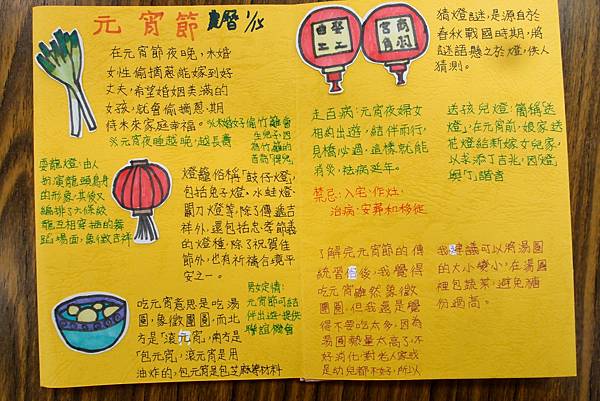 元宵節
農曆1/15
在元宵節夜晚，未婚
女性偷摘蔥能嫁到好
丈夫，希望婚姻美滿的
女孩，就會偷摘蔥，期
待未來家庭幸福。
※未婚婦女偷竹籬會
生兒子，因
為竹籬的
音為「得兒」
※元宵夜睡越晚，越長壽
耍龍燈：由人
扮演龍頭身
的形象，其後又
編排了六條
龍互相穿插的舞
蹈場面，象徵吉祥
燈籠俗稱「鼓仔燈」，
包括兔子燈、水蛙燈、
關刀燈等，除了傳遞吉
祥外，還包括忠、孝、節、義
的燈種，除了祝賀佳
節外，也有祈禱合境平
安之一。
男女定情：
元宵節可結
伴出遊，提供
聯誼機會
吃元宵意思是吃湯
圓，象徵團圓，而北
方是「滾元宵」，南方是
「包元宵」，滾元宵是用
油炸的，包元宵是包芝麻等材料
商
羽
宮
角
猜燈謎，是源自於
春秋戰國時期，將
謎語懸之於燈，供人
猜測。
走百病：元宵夜婦女
相約出遊，結伴而行，
見橋必過，這樣就能
消災，祛病延年。
送孩兒燈：簡稱「送
燈」，在元宵前，娘家送
花燈給新嫁女兒家，
以求添丁吉兆，因「燈」
與「丁」諧音
禁忌：入宅、作灶、
治病、安葬和移徙
了解完元宵節的傳
統習俗後，我覺得
吃元宵雖然象徵
團圓，但我還是覺
得不要吃太多，因為
湯圓熱量太高了，不
好消化，對老人家或
是幼兒都不好，所以
我建議可以將湯圓
的大小變小，在湯圓
裡包蔬菜，避免糖
份過高。